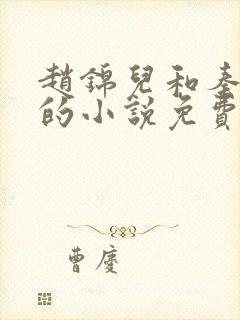 趙錦兒和秦
的小說免費
曹慶